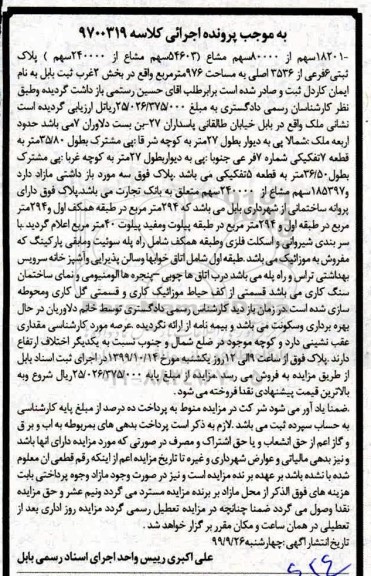 به موجب پرونده اجرائی کلاسه ۹۷۰۰۳۱۹
-۱۸۲۰۱سهم از ۸۰۰۰۰سهم مشاع (۵۴۶۰۳سهم مشاع از ۲۴۰۰۰۰سهم ) پلاک
ثبتی۶فرعی از ۳۵۳۶ اصلی به مساحت ۹۷۶مترمربع واقع در بخش ۲غرب ثبت بابل به نام
ایمان کاردل ثبت و صادر شده است برابرطلب اقای حسین رستمی باز داشت گردیده وطبق
نظر کارشناسان رسمی دادگستری به مبلغ ۲۵/۰۲۶/۳۷۵/۰۰۰ریال ارزیابی گردیده است
نشانی ملک واقع در بابل خیابان طالقانی پاسداران ۲۷-بن بست دلاوران ۷می باشد حدود
اربعه ملک :شمالا پی به دیوار بطول ۲۷متر به کوچه شر قا :پی مشترک بطول ۳۵/۸۰متر به
قطعه ۷تفکیکی شماره ۷فر عی جنوبا :پی به دیواربطول ۲۷متر به کوچه غربا :پی مشترک
بطول۳۶/۵۰متر به قطعه ۵تفکیکی می باشد .پلاک فوق سه مورد باز داشتی مازاد دارد
و۱۸۵۳۹۷سهم مشاع از ۲۴۰۰۰۰سهم متعلق به بانک تجارت می باشد.پلاک فوق دارای
پروانه ساختمانی از شهرداری بابل می باشد که ۲۹۴متر مربع در طبقه همکف اول و۲۹۴متر
مربع در طبقه اول و ۲۹۴متر مربع در طبقه پیلوت ومفید پیلوت ۴۰متر مربع اعلام گردید.با
سر بندی شیروانی و اسکلت فلزی وطبقه همکف شامل راه پله سوئیت ومابقی پارکینگ که
مفروش به موزائیک می باشد.طبقه اول شامل اتاق خوابها وسالن پذیرایی وآشپز خانه سرویس
بهداشتی تراس و راه پله می باشد درب اتاق ها چوبی –پنجره ها الومنیومی و نمای ساختمان
سنگ کاری می باشد قسمتی از کف حیاط موزائیک کاری و قسمتی گل کاری ومحوطه
سازی شده است.در زمان باز دید کارشناس رسمی دادگستری توسط خانم دلاوریان در حال
بهره برداری وسکونت می باشد و بیمه نامه از ارائه نگردیده .عرصه مورد کارشناسی مقداری
عقب نشینی دارد و کوچه موجود در ضلع شمال و جنوب نسبت به یکدیگر اختلاف ارتفاع
دارند .پلاک فوق از ساعت ۹الی ۱۲روز یکشنبه مورخ ۱۳۹۹/۱۰/۱۴در اجرای ثبت اسناد بابل
از طریق مزایده به فروش می رسد مزایده از مبلغ پایه ۲۵/۰۲۶/۳۷۵/۰۰۰ریال شروع وبه
بالاترین قیمت پیشنهادی نقدا فروخته می شود .
.ضمنا یاد آور می شود شر کت در مزایده منوط به پرداخت ده درصد از مبلغ پایه کارشناسی
به حساب سپرده ثبت می باشد .لازم به ذکر است پرداخت بدهی های بمربوطه به اب و بر ق
و گاز اعم از حق انشعاب و یا حق اشتراک و مصرف در صورتی که مورد مزایده دارای انها باشد
و نیز بدهی مالیاتی و عوارض شهرداری و غیره تا تاریخ مزایده اعم از اینکه رقم قطعی ان معلوم
شده یا نشده باشد بر عهده بر نده مزایده است و نیز در صورت وجود مازاد وجوه پرداختی بابت
هزینه های فوق الذکر از محل مازاد بر برنده مزایده مسترد می گردد ونیم عشر و حق مزایده
نقدا وصول می گردد ضمنا چنانچه در مزایده تعطیل رسمی گردد مزایده روز اداری بعد از
تعطیلی در همان ساعت و مکان مقرر بر گزار خواهد شد .
تاریخ انتشار آگهی:چهارشنبه۹۹/۹/۲۶
علی اکبری رییس واحد اجرای اسناد رسمی بابل